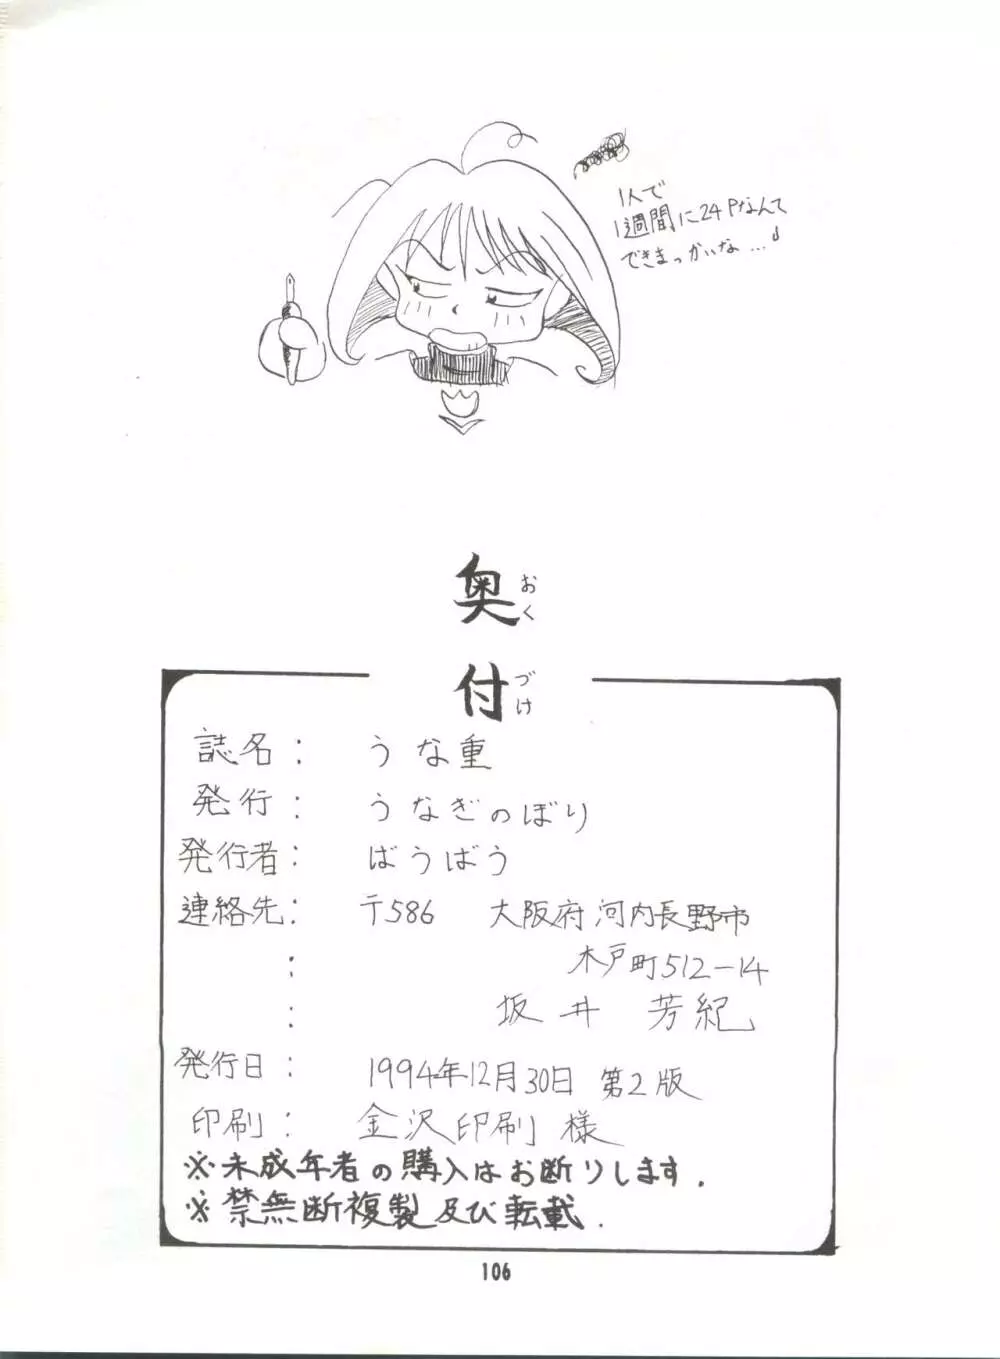 1人で
1週間に24Pなんて
できまっかいな…♩
奥付
おくづけ
誌名： うな重
発行： うなぎのぼり
発行者： ばうばう
連絡先： 〒586 大阪府河内長野市
： 木戸町512-14
： 坂井 芳紀
発行日： 1994年12月30日 第2版
印刷： 金沢印刷 様
※未成年者の購入はお断りします．
※禁無断複製及び転載．
106